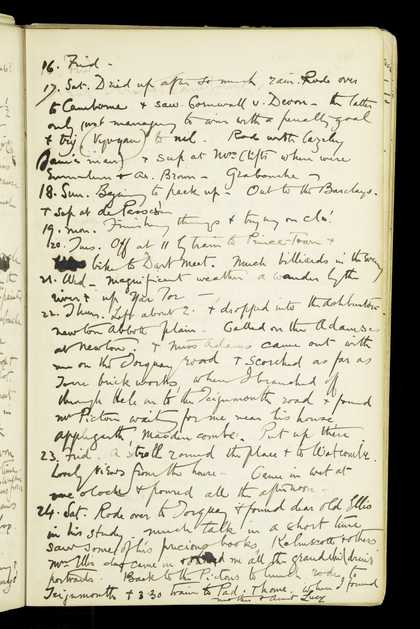 16. Frid -
17. Sat. Dried up after so much rain. Rode over
to Camborne & saw Cornwall v. Devon - the latter
only just managing to win with a penalty goal
& try (Vyvyan) to nil. Rode with
man) & sup at Mrs Clifts where were
& Av. Brown -
18. Sun. Began to pack up - Out to the Barclays.
& Sup at
19. Mon. Finishing things & trying on
20. Tues. Off at 11 by train to Princetown &
bike to Dartmeet. Much billiards in the evng
21. Wed - magnificent weather & wander by the
river & up Tor -
22. Thurs. Left about 2. & dropped into the Ashburton-
Newton Abbott plain - Called on the Adamses
at Newton. & Miss Adams came out with
me on the Torquay road & scorched as far as
some brick works, when I branched off
through Hele on to the Teignmouth road & found
Mr Picton waiting for me near his house
Applegarth, Maidencombe. Put up there
23. Frid. A stroll round the place & to Watcombe.
Lovely views from the house - Came in wet at
one o'clock & poured all the afternoon -
24. Sat. Rode over to Torquay & found dear old Ellis
in his study much talk in a short time
saw some of his precious books, Kelmscott & others
Mrs Ellis came in & me all the grandchildren's
portraits. Back to the Pictons to lunch rode to
Teignmouth & 3.30 train to Pad. & home, where I found
mother & Aunt Lucy